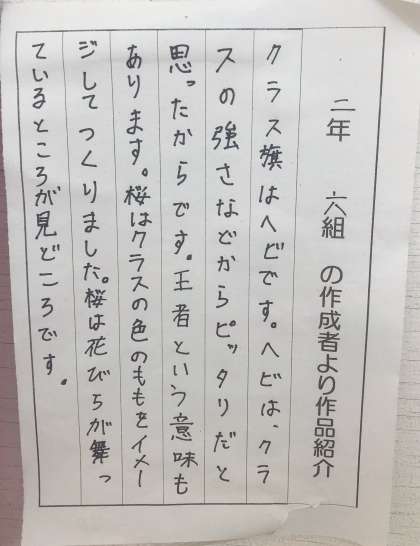 二年 六組 の作成者より作品紹介
クラス旗はヘビです。ヘビは、クラ
スの強さなどからピッタリだと
思ったからです。王者という意味も
あります。桜はクラスの色のももをイメー
ジしてつくりました。桜は花びらが舞っ
ているところが見どころです。